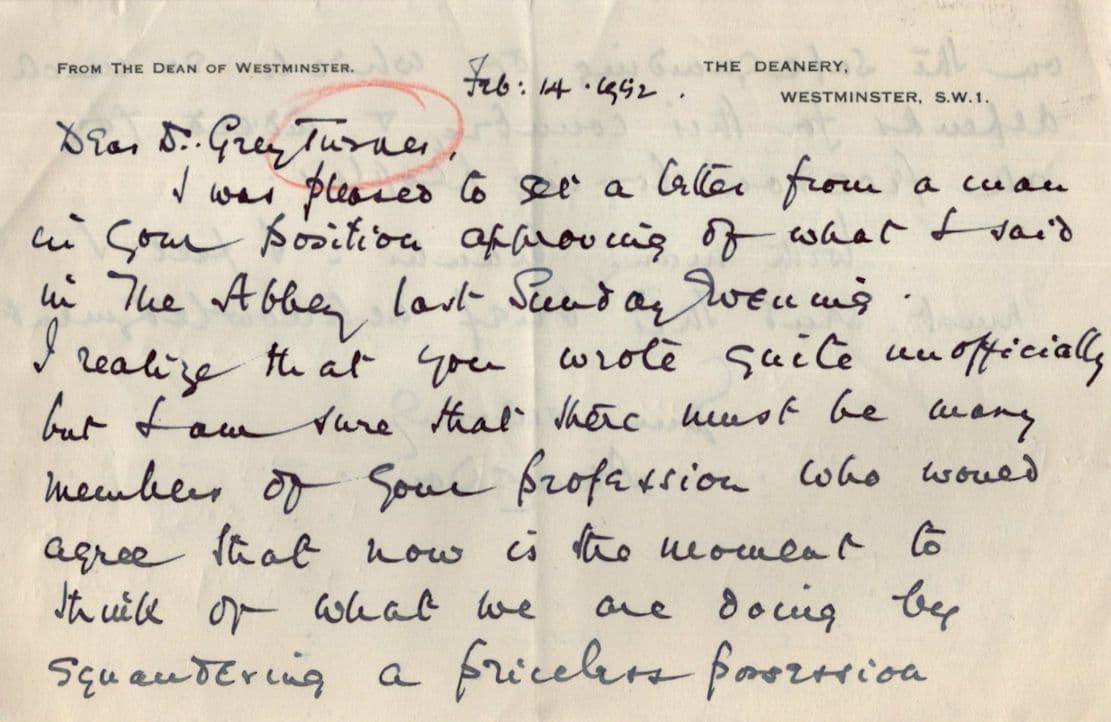 FROM THE DEAN OF WESTMINSTER.
THE DEANERY,
WESTMINSTER, S.W.1.
Feb: 14. 1952.
Dear Dr. Grey Turner,
I was pleased to get a letter from a man
in your position approving of what I said
in The Abbey last Sunday Evening.
I realize that you wrote quite unofficially
but I am sure that there must be many
members of your profession who would
agree that now is the moment to
think of what we are doing by
squandering a priceless possession